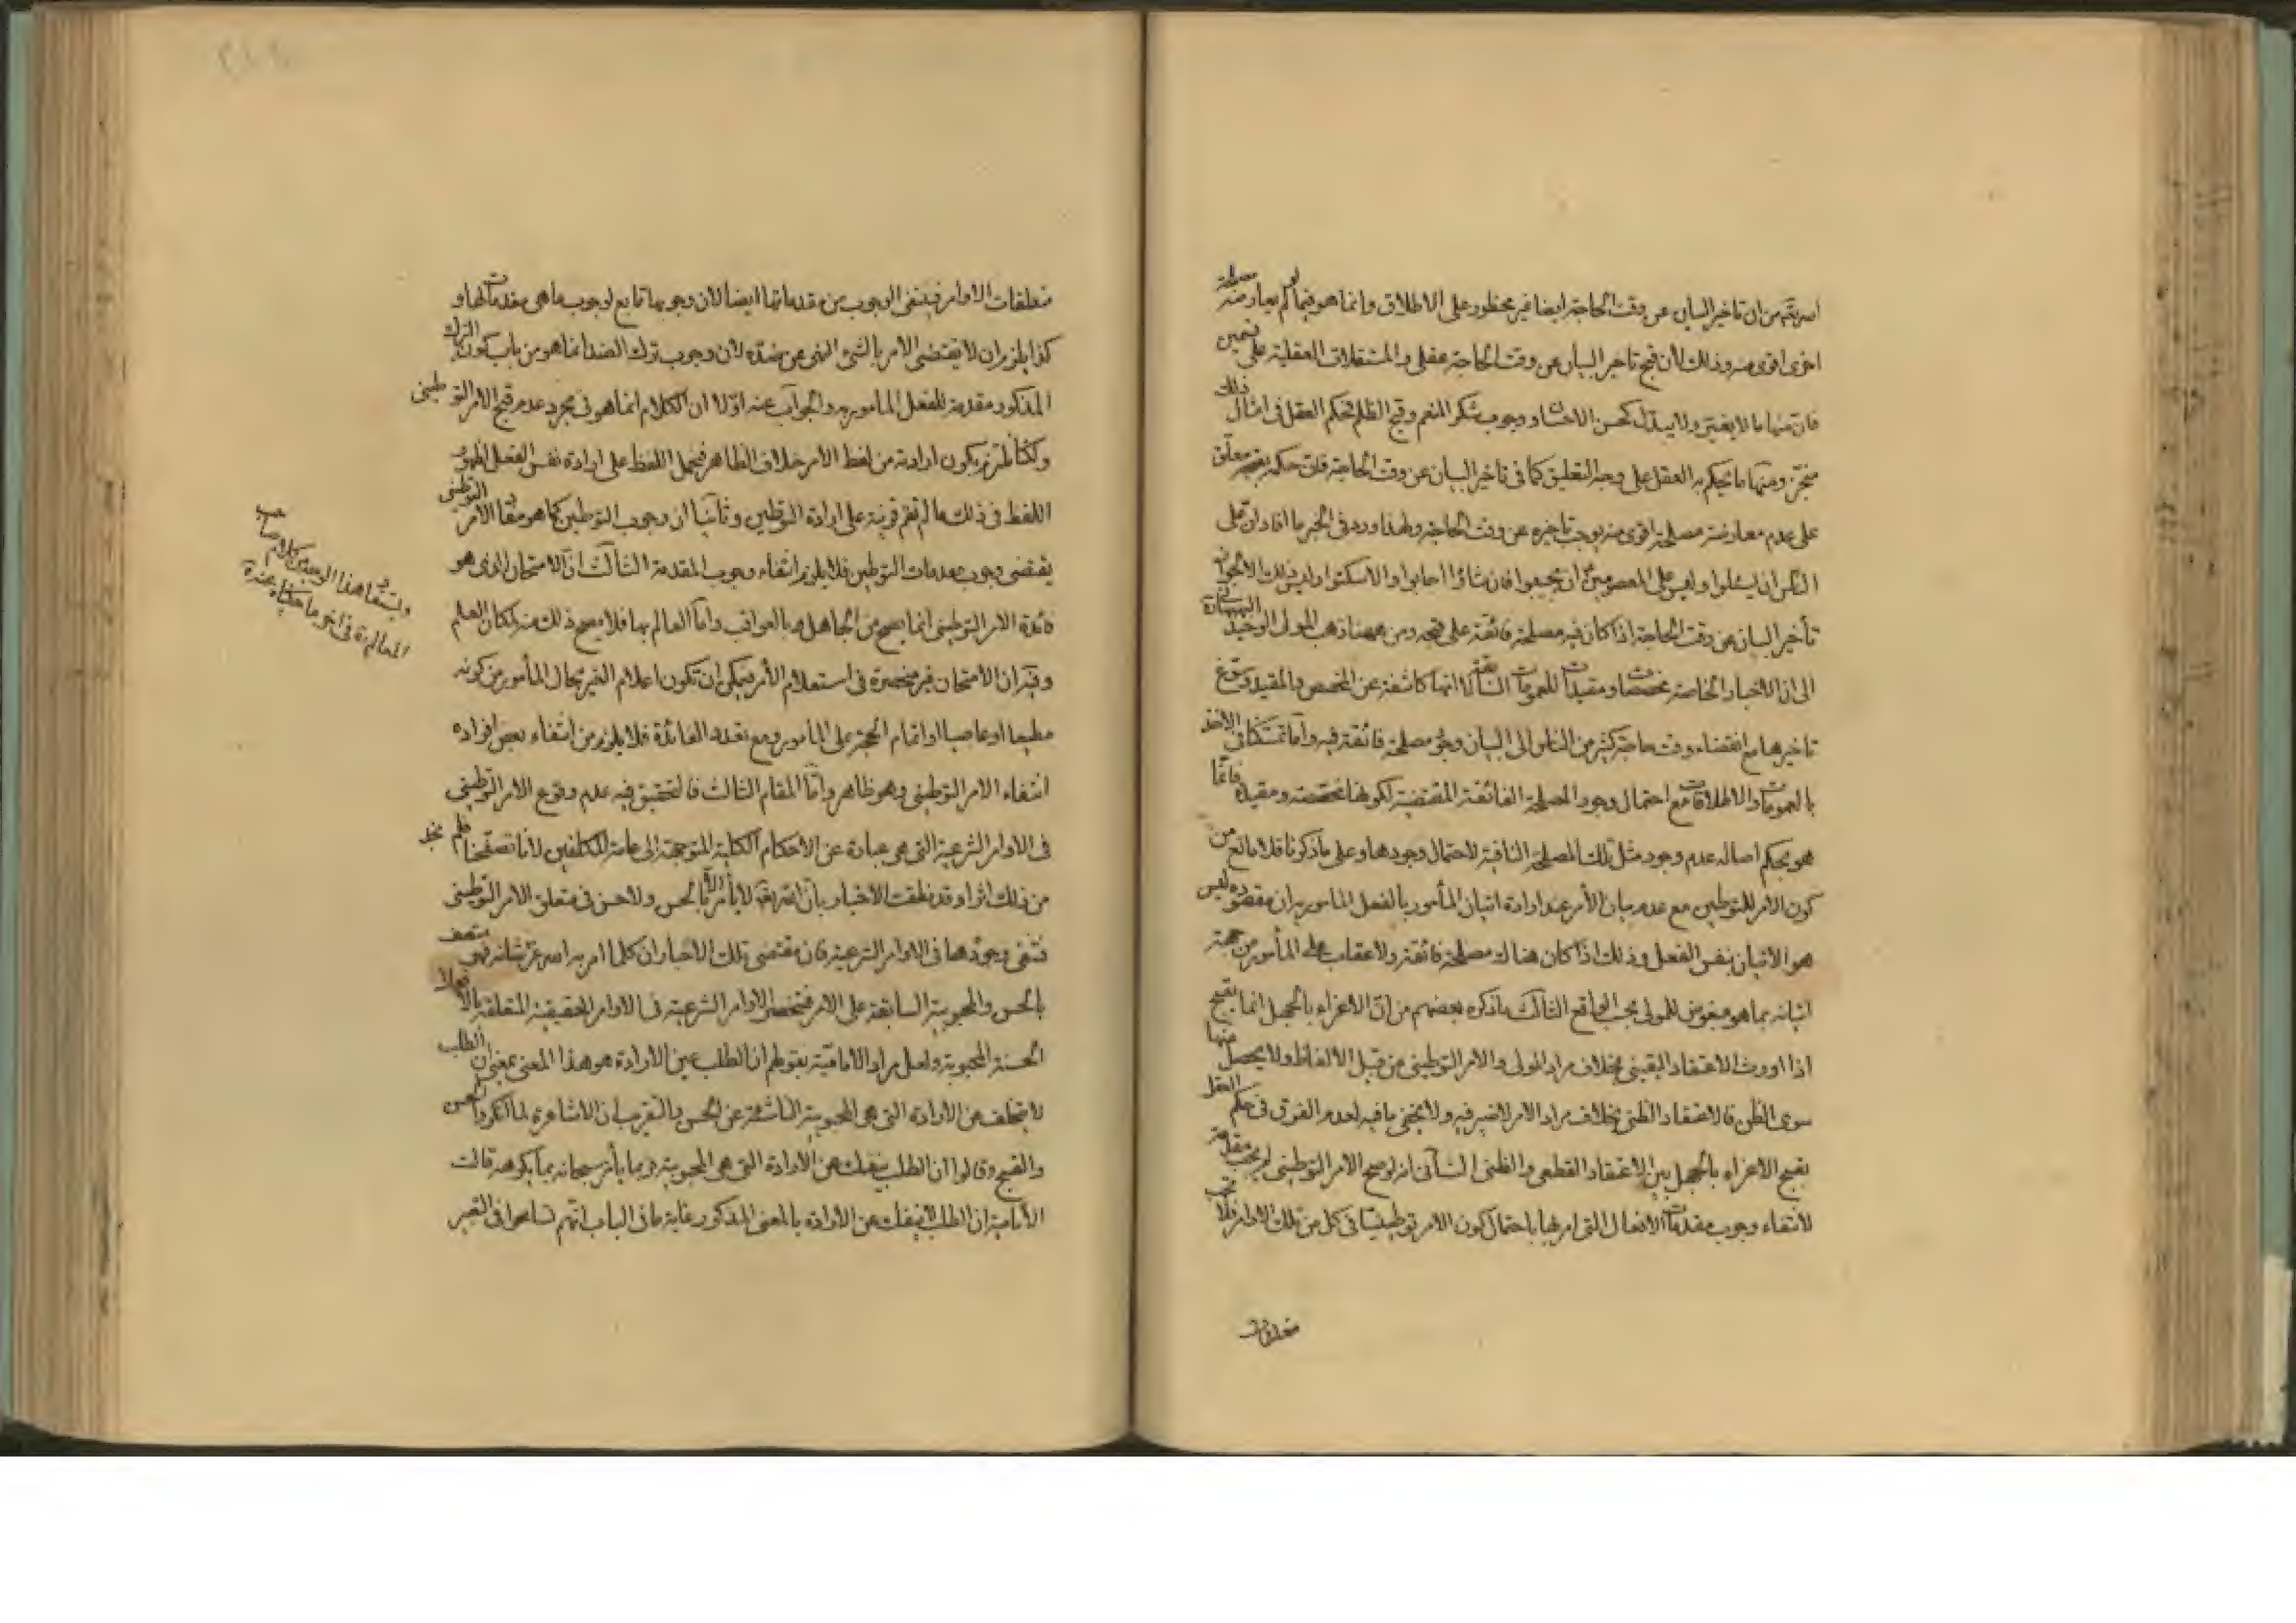 اصريتم من ان تاخير البيان عن وقت الحاجة ايضا غير محظور على الاطلاق وانما هو فيما لم يعارضه مصلحة
اخرى اقوى منه وذلك لان قبح تاخير البيان عن وقت الحاجة عقلى والمستقلات العقلية على قسمين
فان منها ما لا يتغير ولا يتبدل كحسن الاحسان ووجوب شكر المنعم وقبح الظلم فحكم العقل فى امثال ذلك
منجز ومنها ما يحكم به العقل على وجه التعليق كما فى تاخير البيان عن وقت الحاجة فان حكمه بقبحه معلق
على عدم معارضة مصلحة اقوى منه يوجب تاخيره عن وقت الحاجة ولهذا ورد فى الخبر ما افاد ان على
الناس ان يسئلوا وليس على المعصومين ان يجيبوا فان شاؤا اجابوا والا سكتوا وليس ذلك الا لجواز
تأخير البيان عن وقت الحاجة اذا كان فيه مصلحة فائقة على قبحه ومن ههنا ذهب المولى الوحيد البهبهانى
الى ان الاخبار الخاصة مخصصات ومقيدات للعمومات السابقة لا انها كاشفة عن المخصص والمقيد وتسوغ
تاخيرها مع انقضاء وقت حاجة كثير من الناس الى البيان وجود مصلحة فائقة فيه واما تمسكنا فى الاخذ
بالعمومات والاطلاقات مع احتمال وجود المصلحة الفائقة المقتضية لكونها مخصصة ومقيدة فانما
هو بحكم اصالة عدم وجود مثل تلك المصلحة النافية لاحتمال وجودها وعلى ما ذكرنا فلا مانع من
كون الامر للتوطين مع عدم بيان الأمر عند ارادة اتيان المأمور بالفعل المامور به ان مقصوده ليس
هو الاتيان بنفس الفعل وذلك اذا كان هناك مصلحة فائقة ولا عقاب على المأمور من جهة
اتيانه بما هو مبغوض للمولى بحسب الواقع الثالث ما ذكره بعضهم من ان الاغراء بالجهل انما يقبح
اذا اورث الاعتقاد اليقينى بخلاف مراد المولى والامر التوطينى من قبيل الالفاظ ولا يحصل منها
سوى الظن فالاعتقاد الظنى بخلاف مراد الامر لا ضير فيه ولا يخفى ما فيه لعدم الفرق فى حكم العقل
بقبح الاغراء بالجهل بين الاعتقاد القطعى والظنى الثانى انه لو صح الامر التوطينى لم يجب مقدمة
لانتفاء وجوب مقدمات الافعال التى امر بها باحتمال كون الامر توطينيا فى كل من تلك الاوامر فلا تجب
متعلقات
متعلقات الاوامر فينتفى الوجوب من مقدماتها ايضا لان وجوبها تابع لوجوب ما هى مقدمات لها و
كذا يلزم ان لا يقتضى الامر بالشئ النهى عن ضده لان وجوب ترك الضد انما هو من باب كون الترك
المذكور مقدمة للفعل المامور به والجواب عنه اولا ان الكلام انما هو فى مجرد عدم قبح الامر التوطينى
ولكنا نلتزم بكون ارادته من لفظ الامر خلاف الظاهر فيحمل اللفظ على ارادة نفس الفعل لظهور
اللفظ فى ذلك ما لم تقم قرينة على ارادة التوطين وثانيا ان وجوب التوطين كما هو مفاد الامر التوطينى
يقتضى وجوب مقدمات التوطين فلا يلزم انتفاء وجوب المقدمة الثالث ان الامتحان الذى هو
فائدة الامر التوطينى انما يصح من الجاهل بالعواقب واما العالم بها فلا يصح ذلك منه لمكان العلم
وفيه ان الامتحان غير منحصرة فى استعلام الأمر فيمكن ان تكون اعلام الغير بحال المأمور من كونه
مطيعا او عاصيا او اتمام الحجة على المأمور ومع تعدد الفائدة فلا يلزم من انتفاء بعض افراده
انتفاء الامر التوطينى وهو ظاهر واما المقام الثالث فالتحقيق فيه عدم وقوع الامر التوطينى
فى الاوامر الشرعية التى هى عبارة عن الاحكام الكلية المتوجهة الى عامة المكلفين لانا تصفحنا فلم نجد
من ذلك اثرا وقد نطقت الاخبار بان الله تعالى لا يأمر الا بالحسن ولا حسن فى متعلق الامر التوطينى
فينتفى وجودها فى الاوامر الشرعية فان مقتضى تلك الاخبار ان كلما امر به الله عز شانه فهو متصف
بالحسن والمحبوبية السابقة على الامر فتنحصر الاوامر الشرعية فى الاوامر الحقيقية المتعلقة بالافعال
الحسنة المحبوبة ولعل مراد الامامية بقولهم ان الطلب عين الارادة هو هذا المعنى بمعنى ان الطلب
لا يتخلف عن الارادة التى هى المحبوبية الناشئة عن الحسن بالتقريب ان الاشاعرة لما انكروا الحسن
والقبح وقالوا ان الطلب ينفك عن الارادة التى هى المحبوبية وربما يأمر سبحانه بما يكرهه قالت
الامامية ان الطلب لا ينفك عن الارادة بالمعنى المذكور غاية ما فى الباب انهم تسامحوا فى التعبير
ويستفاد هذا الوجه من كلام صاحب
المعالم ره فى اخر ما حكيناه عنه